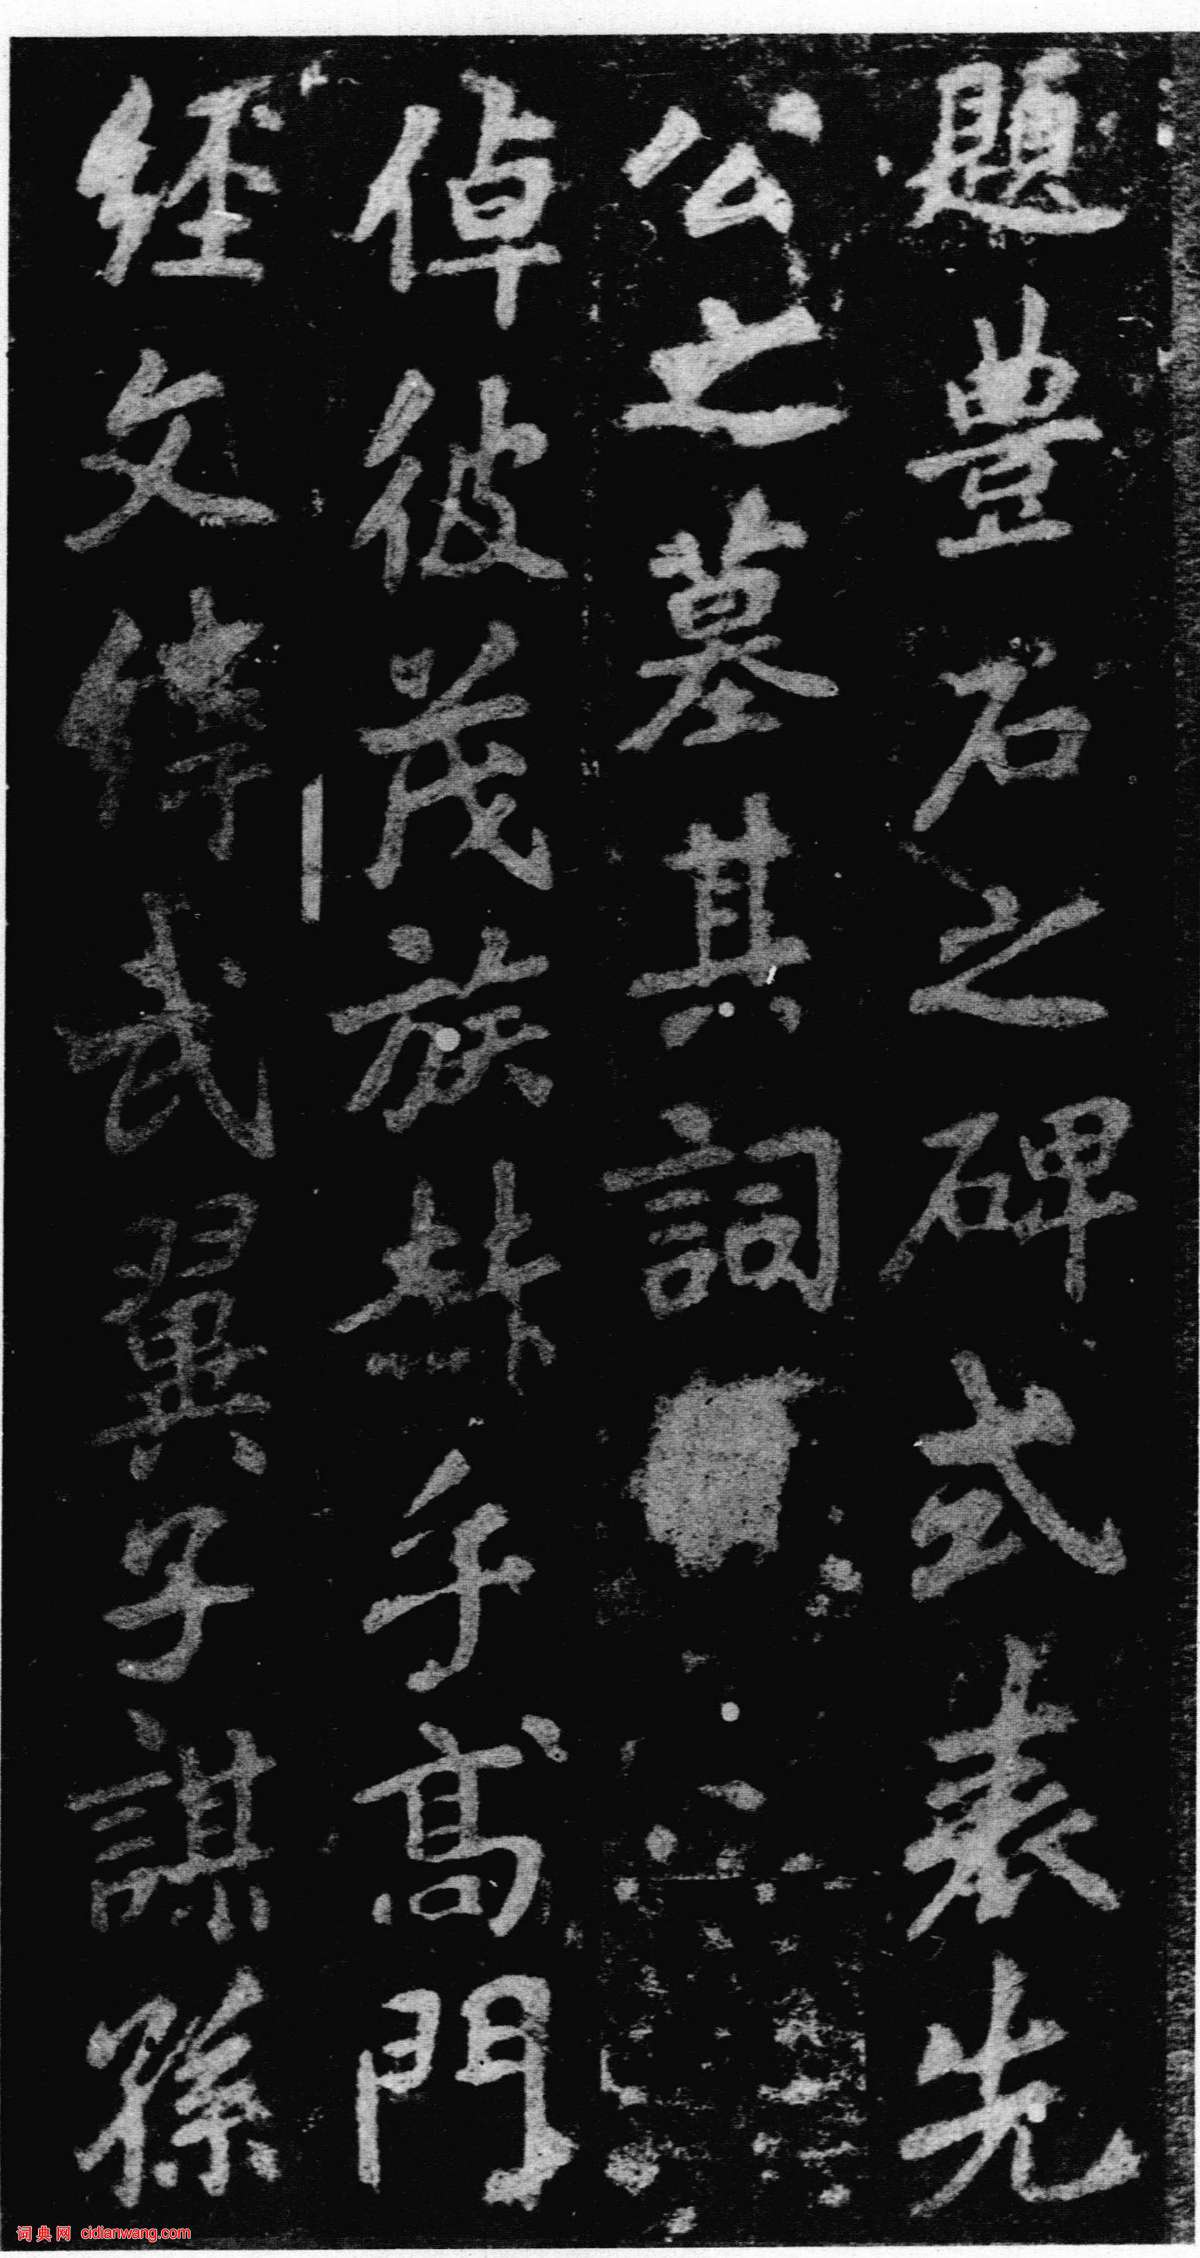 題豊石之碑式表先
公之墓其詞
倬彼茂族赫乎高門
經文緯武翼子謀孫
词典网 cidianwang.com